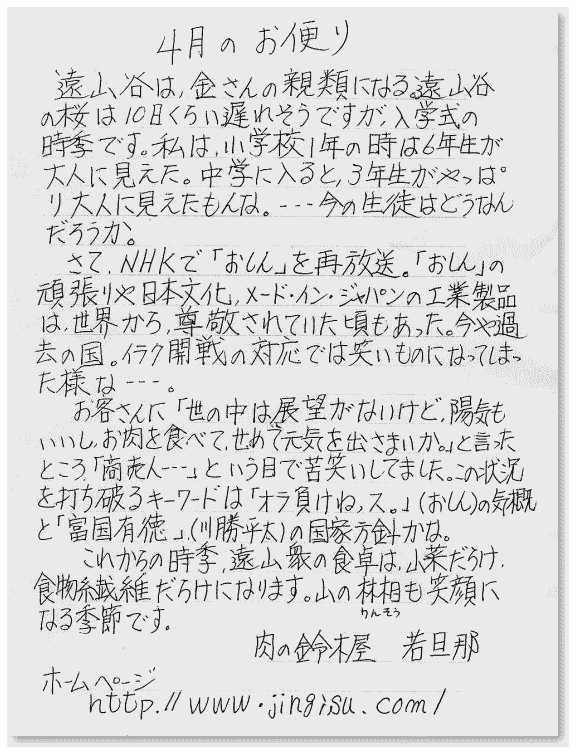 4月のお便り
遠山谷は、金さんの親類になる。遠山谷
の桜は10日くらい遅れそうですが、入学式の
時季です。私は、小学校1年の時は6年生が
大人に見えた。中学に入ると、3年生がやっぱ
り大人に見えたもんな。---今の生徒はどうなん
だろうか。
さて、NHKで「おしん」を再放送。「おしん」の
頑張りや日本文化、メード・イン・ジャパンの工業製品
は、世界から、尊敬されていた頃もあった。今や過
去の国。イラク開戦の対応では笑いものになってしまっ
た様な---。
お客さんに「世の中は展望がないけど、陽気も
いいし、お肉を食べて、せめて元気を出さまいか。」と言った
ところ「商売人---」という目で苦笑いしてました。この状況
を打ち破るキーワードは「オラ負けねぇス。」(おしん)の気概
と「富国有徳」、(川勝平太)の国家方針かな。
これからの時季、遠山衆の食卓は、山菜だらけ、
食物繊維だらけになります。山の林相も笑顔に
りんそう
なる季節です。
肉の鈴木屋 若旦那
ホームページ
http.//www.jingisu.com/